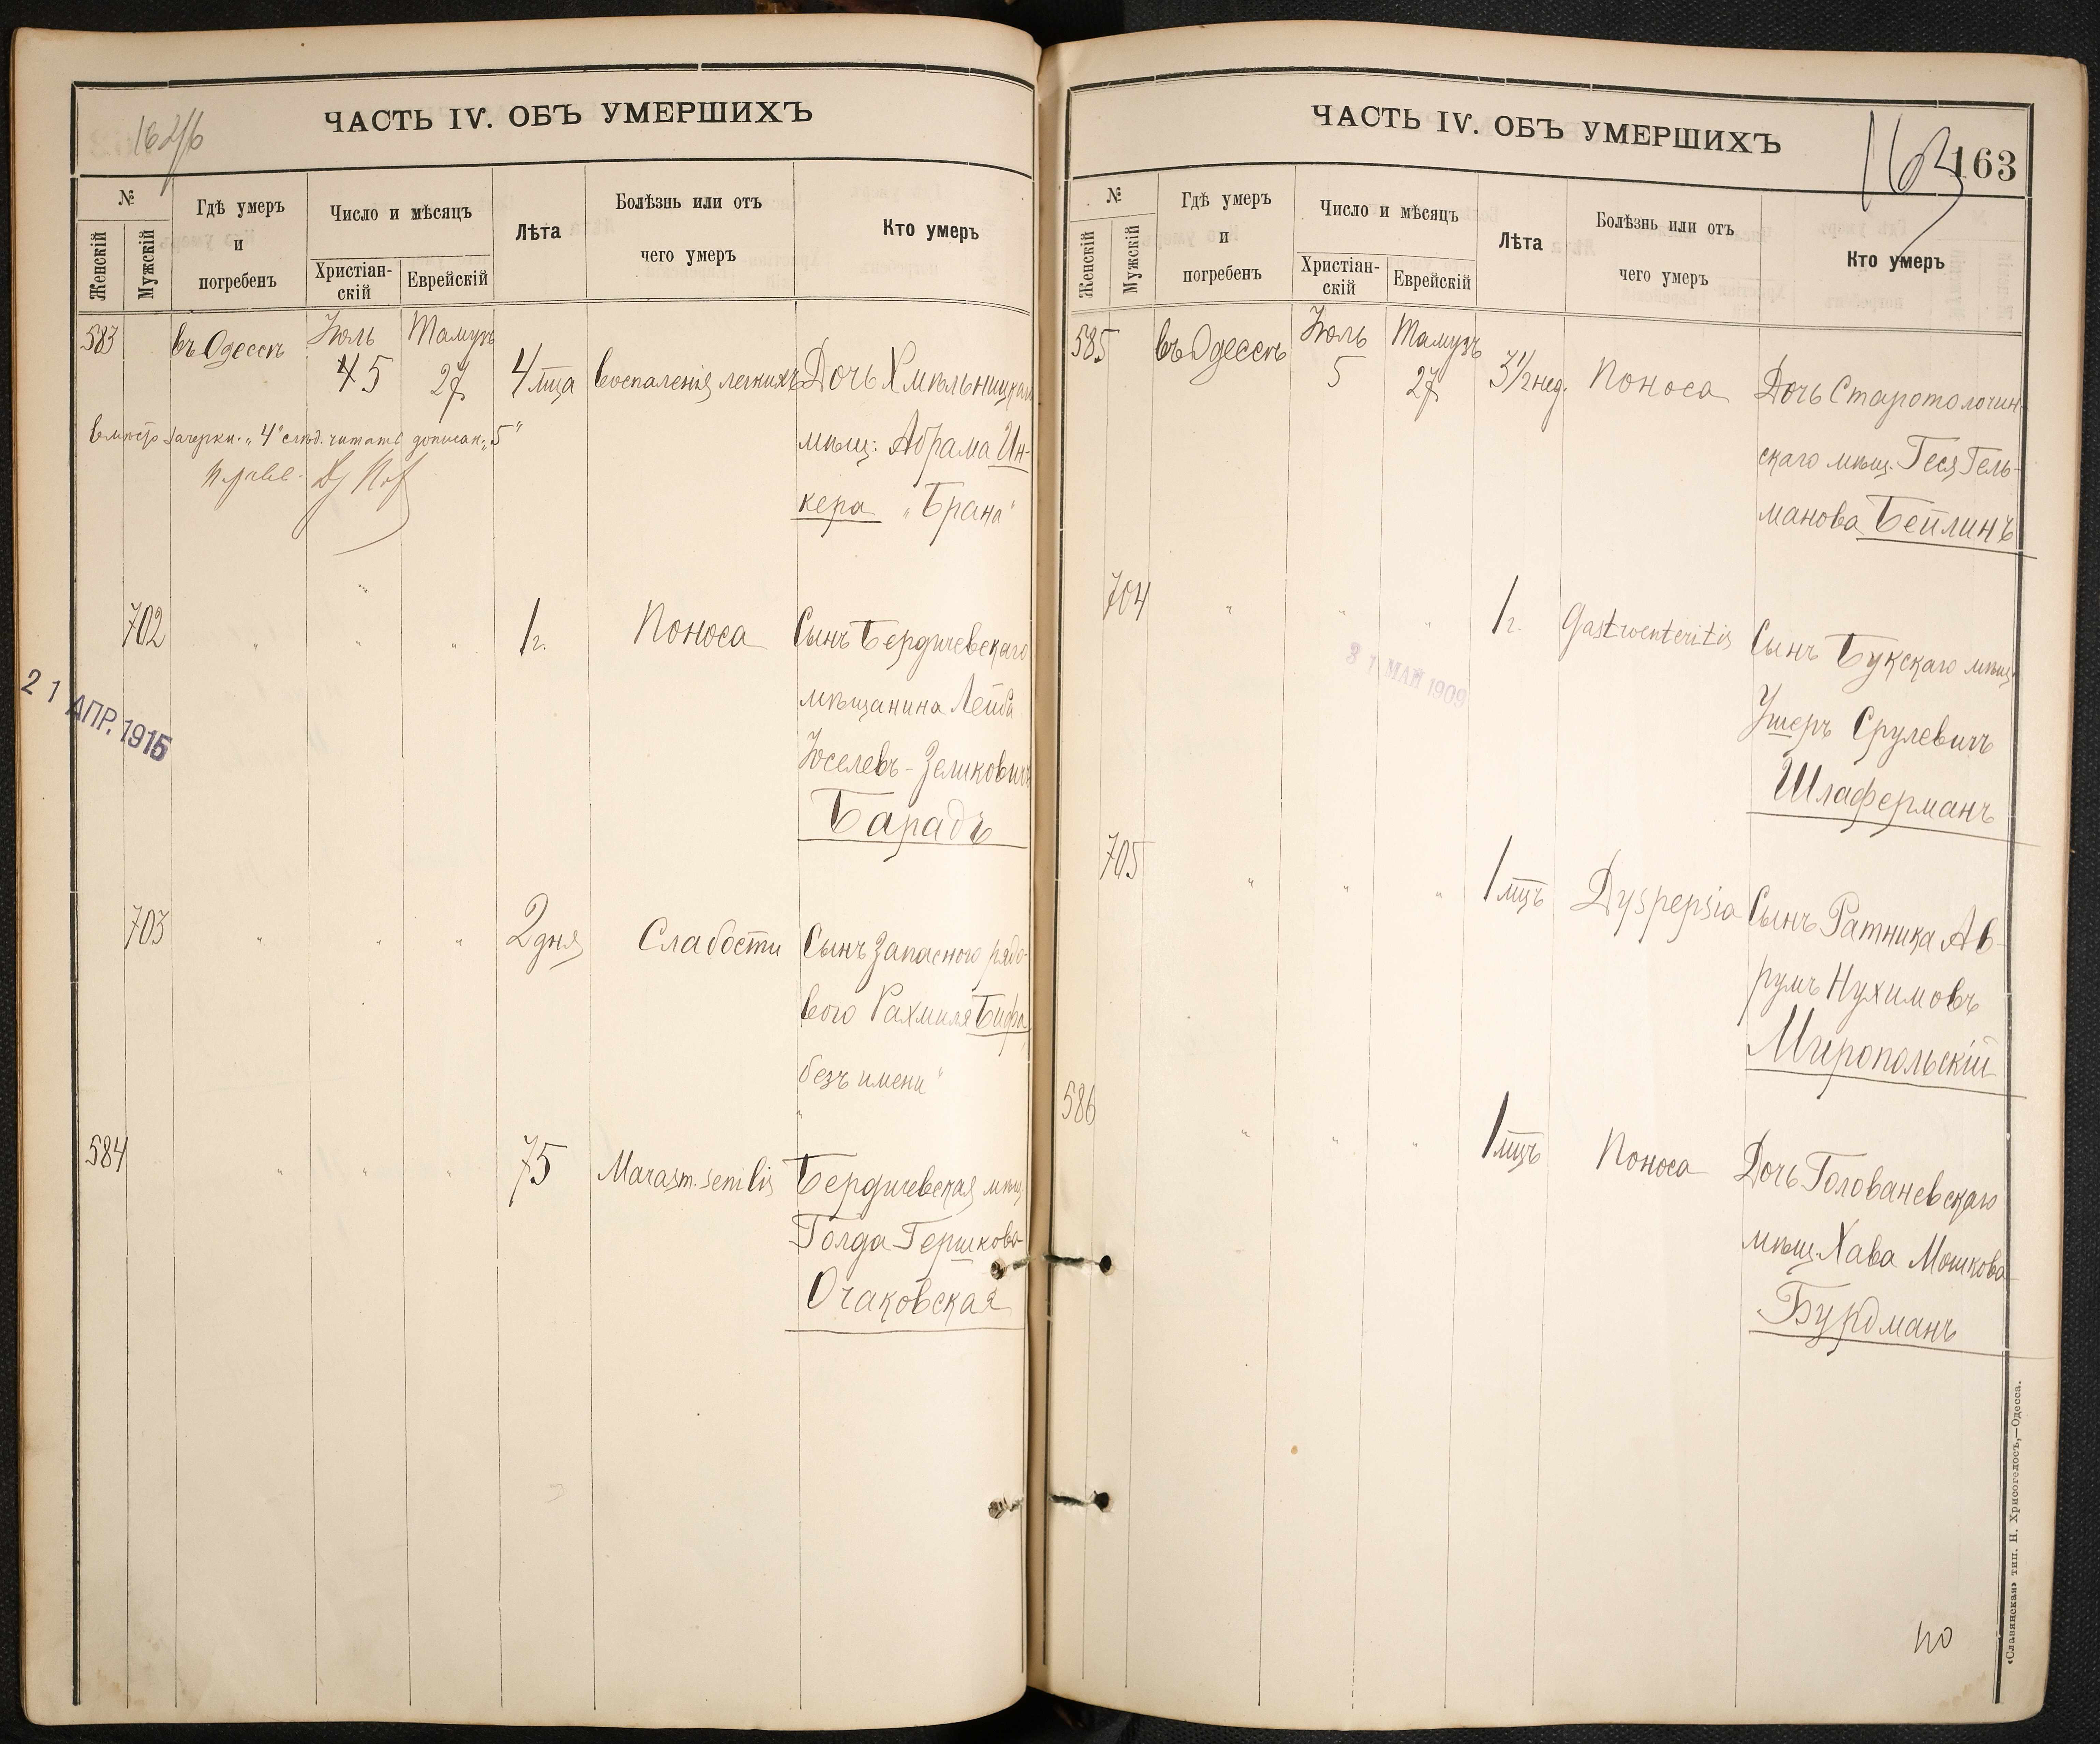 162/б
ЧАСТЬ IV. ОБЪ УМЕРШИХЪ
№
Женскій
Мужскій
Гдѣ умеръ
и
погребенъ
Число и мѣсяцъ
Христіан-
скій
Еврейскій
Лѣта
Болѣзнь или отъ
чего умеръ
Кто умеръ
583 въ Одессѣ Іюль 4 5 Тамузъ 27 4 мца воспаленія легкихъ Дочь Хмѣльницкаго
мѣщ: Абрама Ин-
кера „Брана"
вмѣсто зачеркн. „4" слѣд. читать дописан. „5"
702 " " " 1 г. Поноса Сынъ Бердичевскаго
мѣщанина Лейба
Іоселевъ-Зеликовичъ
Барадъ
21 АПР. 1915
703 " " " 2 дня Слабости Сынъ Запасного рядо-
вого Рахмиля Бифа
„безъ имени"
584 " " " 75 Marasm. senilis Бердичевская мѣщ.
Голда Гершкова
Очаковская
ЧАСТЬ IV. ОБЪ УМЕРШИХЪ
163
163
№
Женскій
Мужскій
Гдѣ умеръ
и
погребенъ
Число и мѣсяцъ
Христіан-
скій
Еврейскій
Лѣта
Болѣзнь или отъ
чего умеръ
Кто умеръ
585 въ Одессѣ Іюль 5 Тамузъ 27 3½ нед. Поноса Дочь Старотолочин-
скаго мѣщ. Геся Гель-
манова Бейлинъ
704 " " " 1 г. Gastroenteritis Сынъ Букскаго мѣщ.
Ушеръ Срулевичъ
Шлаферманъ
31 МАЙ 1909
705 " " " 1 мцъ Dyspepsia Сынъ Ратника Ав-
румъ Нухимовъ
Миропольскій
586 " " " 1 мцъ Поноса Дочь Голованевскаго
мѣщ. Хава Мошкова
Бурдманъ
«Славянская» тип. Н. Хрисогелосъ,—Одесса.